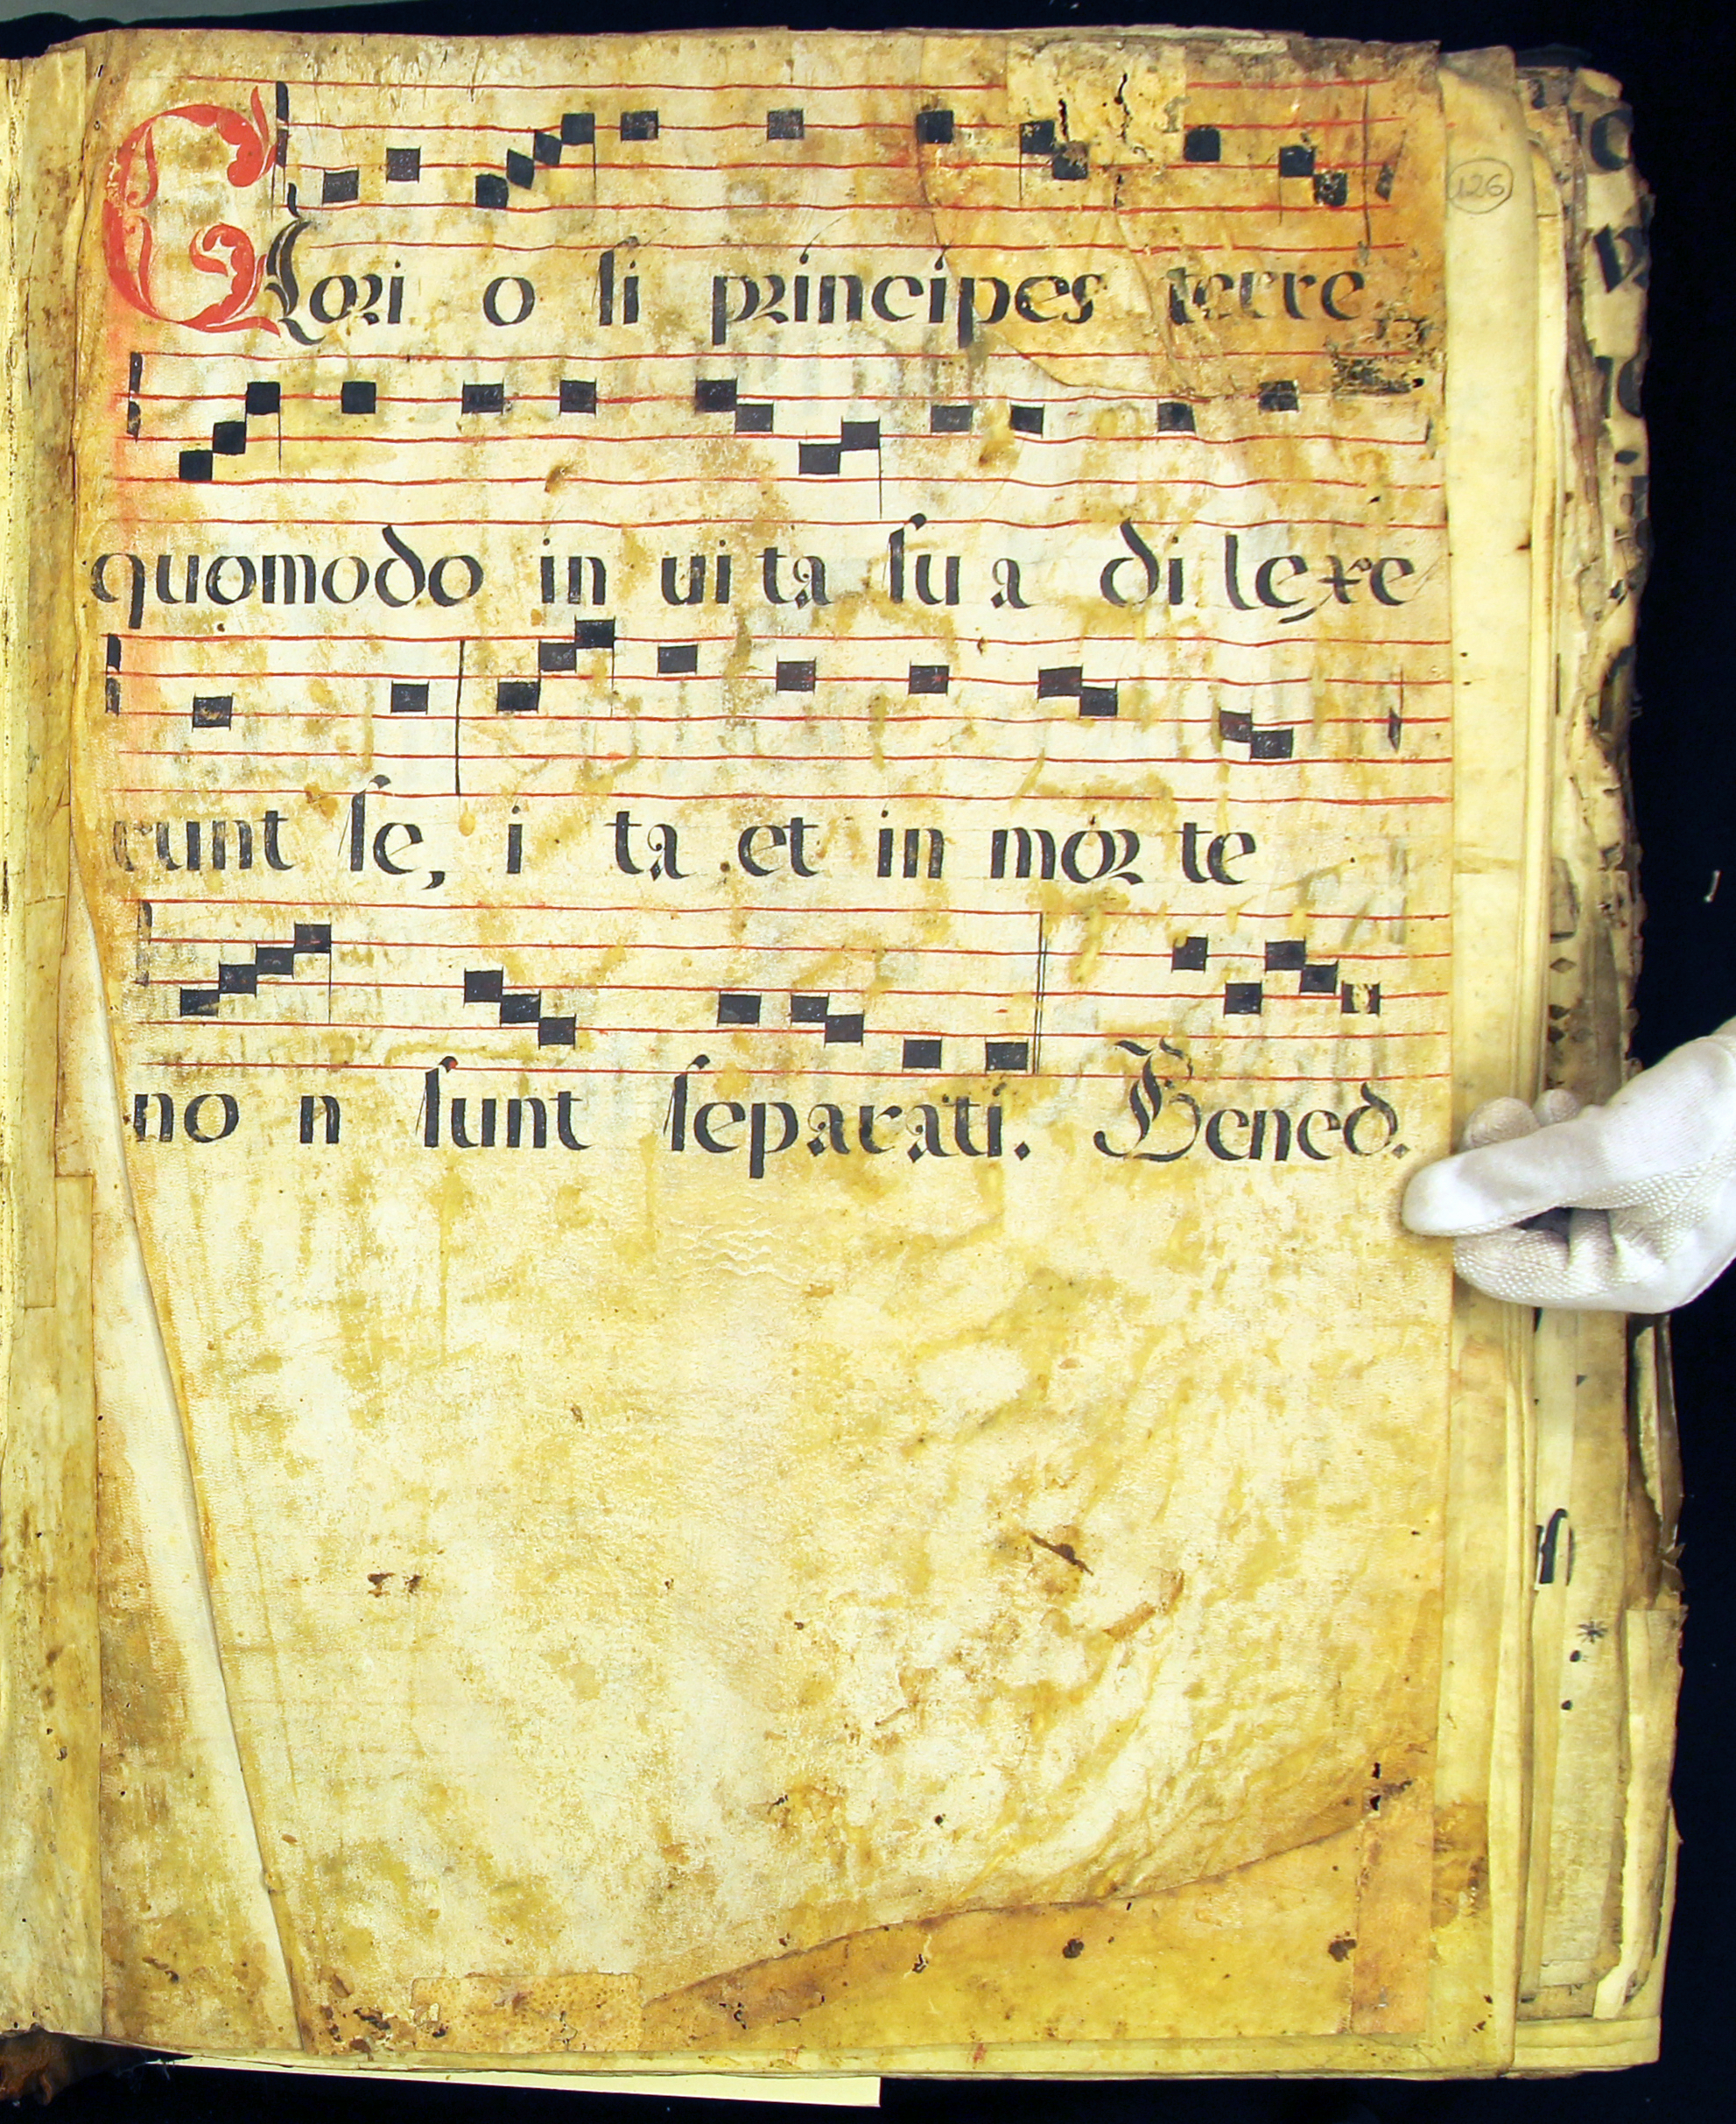 126
Glori o si principes terre
quomodo in ui ta su a di lexe
runt se, i ta et in mor te
no n sunt separati. Bened.